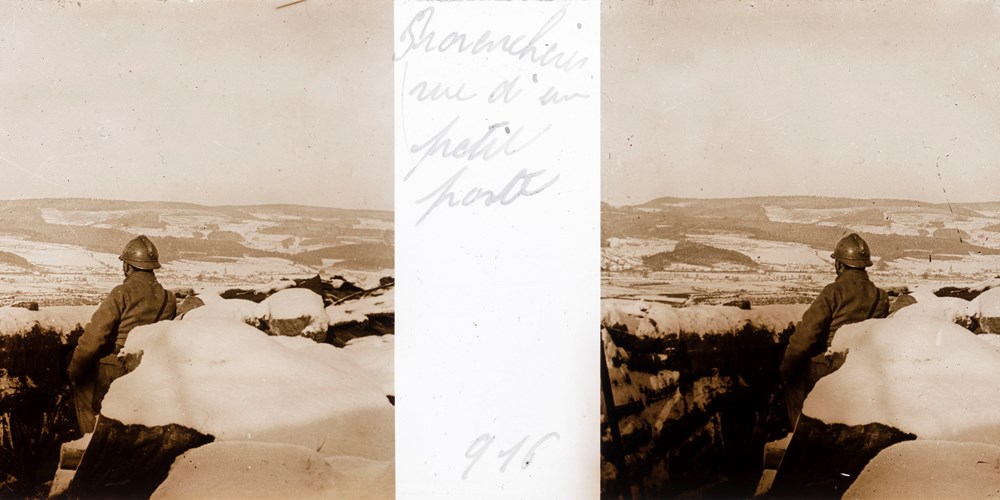 Provenchères
vue d'un
petit
poste
916